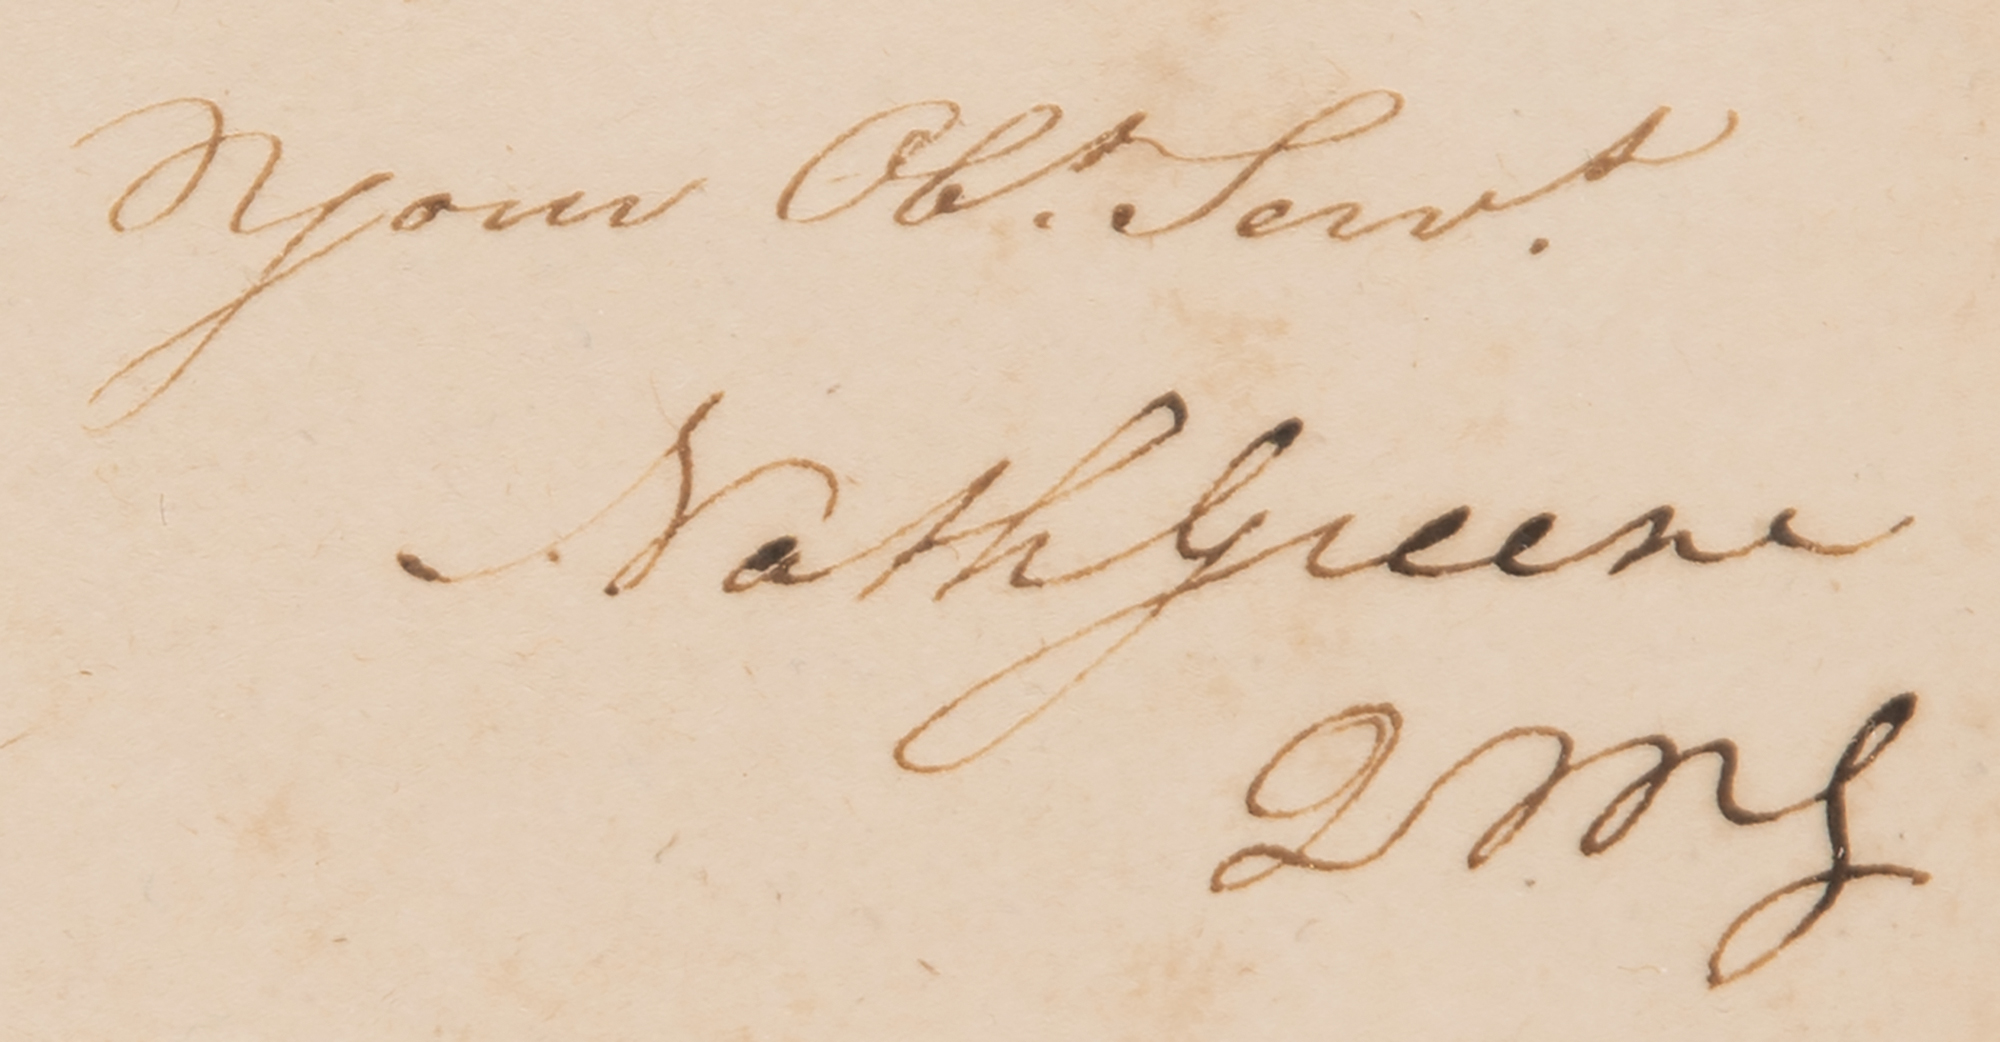 Your Obt. Servt.
Nath Greene
QMG